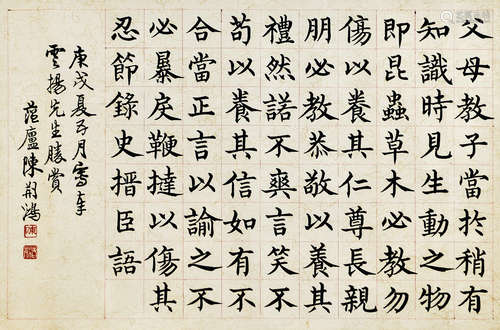 父母教子當於稍有
知識時見生動之物
即昆蟲草木必教勿
傷以養其仁尊長親
朋必教恭敬以養其
禮然諾不爽言笑不
苟以養其信如有不
合當正言以諭之不
必暴戾鞭撻以傷其
忍節錄史搢臣語
庚戌夏五月寫奉
雲揚先生勝賞
蘊廬陳荊鴻